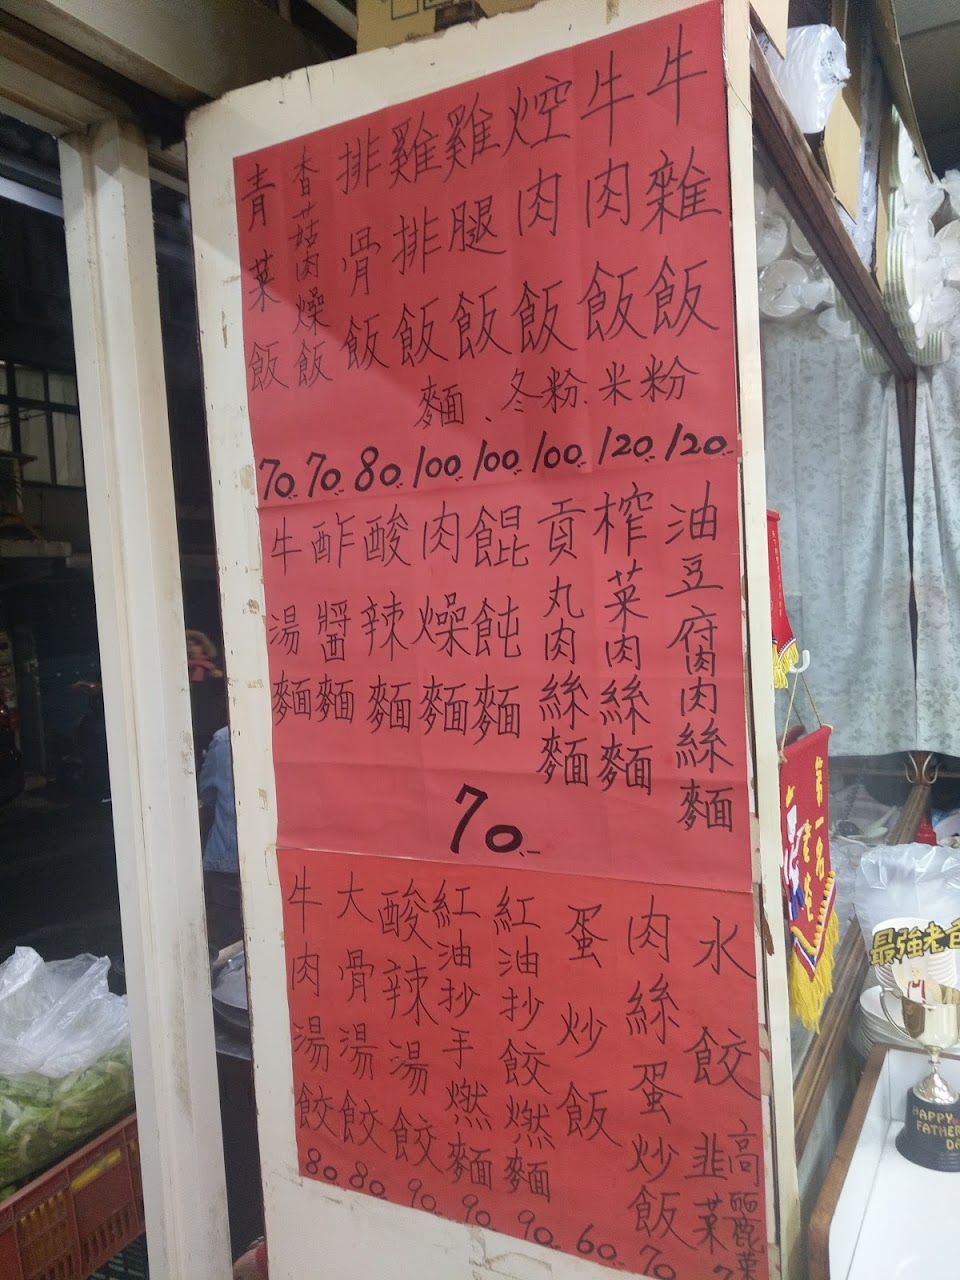 牛雜飯
牛肉飯
焢肉飯
雞腿飯
雞排飯
排骨飯
香菇肉燥飯
青菜飯
麵、冬粉.米粉
70.- 70.- 80.- 100.- 100.- 100.- 120.- 120.-
油豆腐肉絲麵
榨菜肉絲麵
貢丸肉絲麵
餛飩麵
肉燥麵
酸辣麵
酢醬麵
牛湯麵
70.-
水餃
高麗菜
韭菜
肉絲蛋炒飯
蛋炒飯
紅油抄餃燃麵
紅油抄手燃麵
酸辣湯餃
大骨湯餃
牛肉湯餃
80. 80. 90. 90. 90. 60. 70
第一名
老爸
最強老爸
HAPPY
FATHER
DA